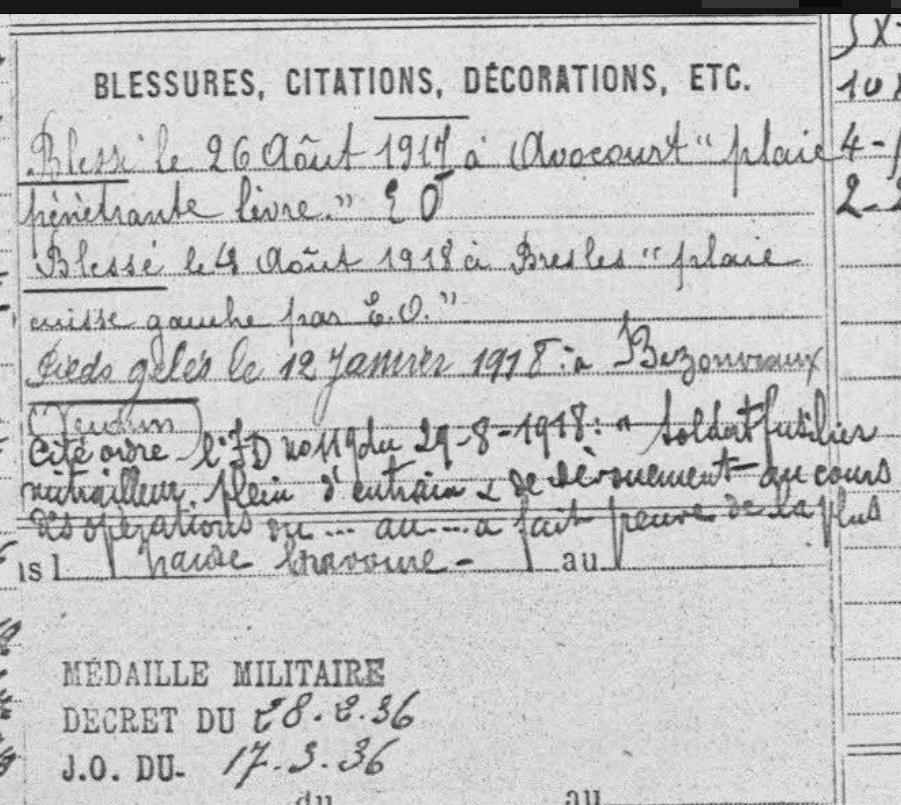 BLESSURES, CITATIONS, DÉCORATIONS, ETC.
Blessé le 26 Août 1917 à Avocourt "plaie
pénétrante lèvre." E O
Blessé le 4 Août 1918 à Bresles "plaie
cuisse gauche par E.O."
Pieds gelés le 12 Janvier 1918 : à Bezonvaux
(Verdun)
Cité ordre l'ID no 119 du 29-8-1918: " Soldat fusilier
mitrailleur, plein d'entrain & de dévouement au cours
des opérations du ... au ... a fait preuve de la plus
is l haute bravoure - au
MÉDAILLE MILITAIRE
DÉCRET DU 28.2.36
J.O. DU 17.3.36
du au
5X
10
4-
2-2